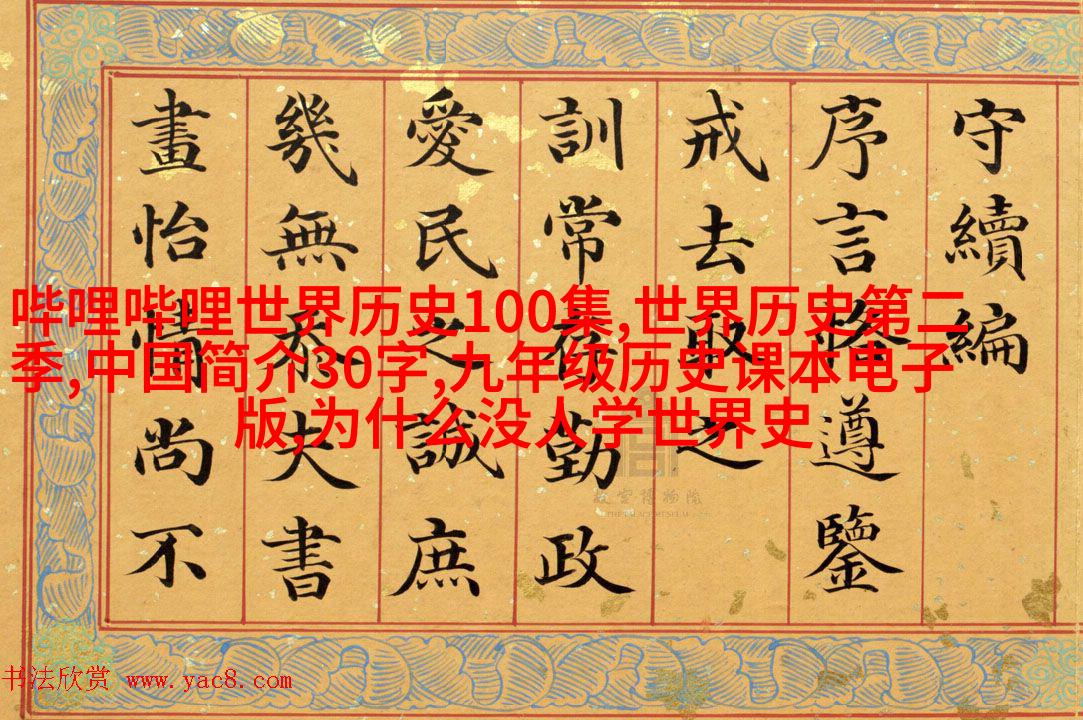 守續編
序言恪遵鑒
戒去取之
訓常存勤政
愛民之識庶
幾無忝夫書
畫怡情尚不
哔哩哔哩世界历史100集,世界历史第二
季,中国简介30字,九年级历史课本电子
版,为什么没人学世界史
故宫博物院
THE PALACE MUSEUM
书法欣赏 www.yac8.com